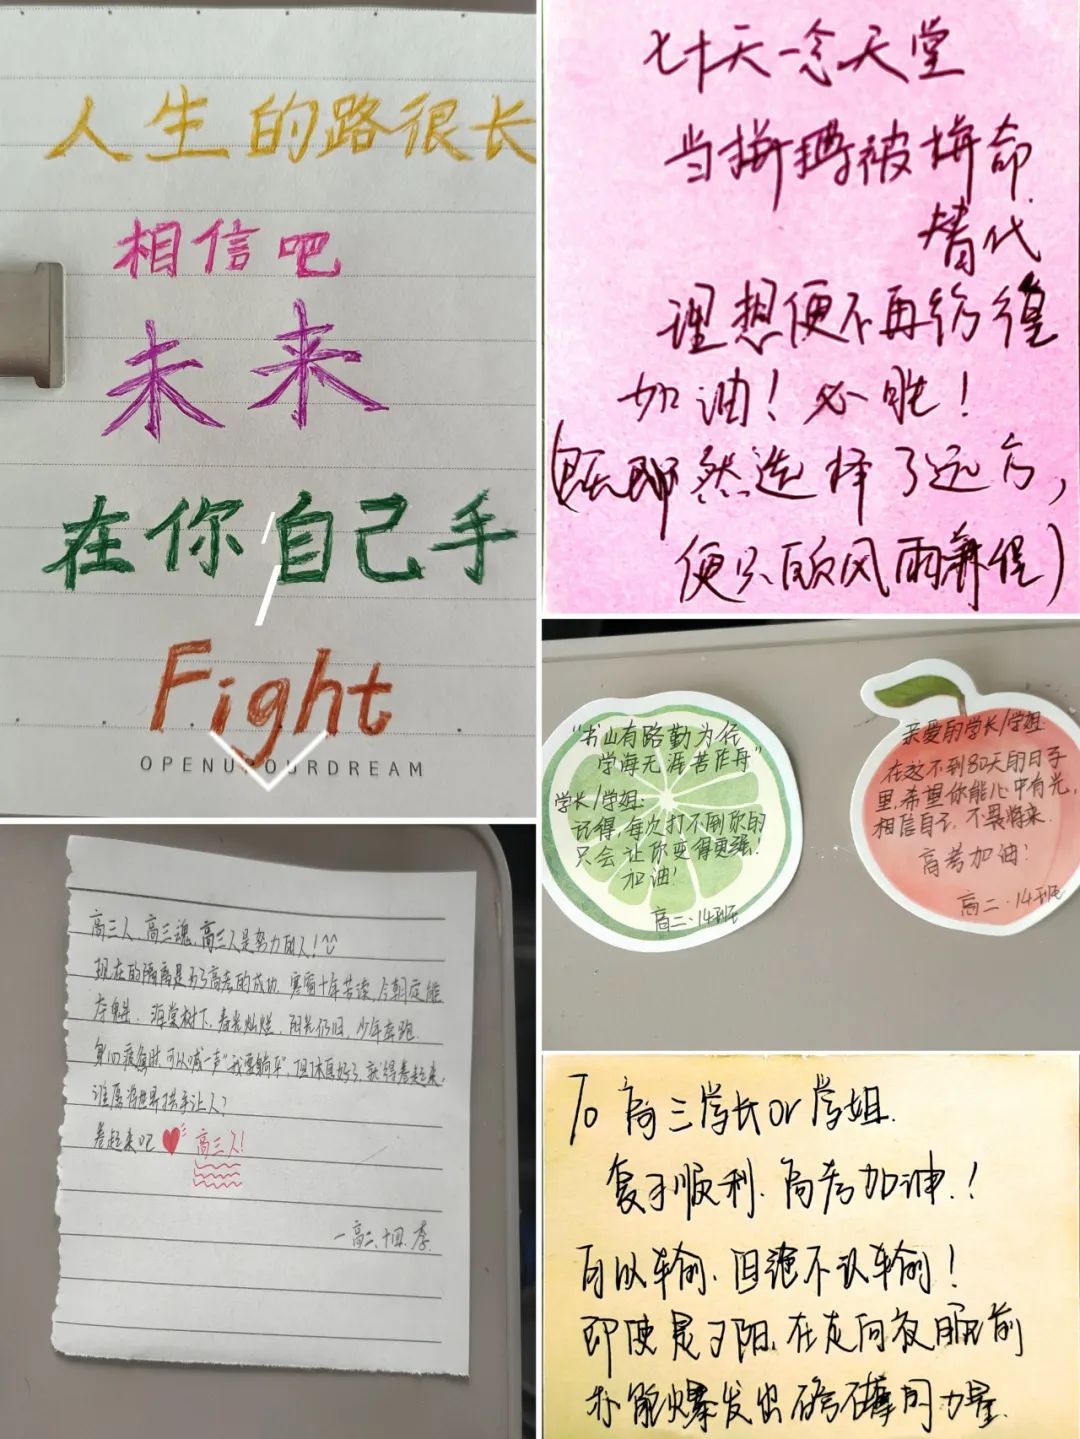 人生的路很长
相信吧
未来
在你自己手
Fight
OPENUPOURDREAM
七十天一念天堂
当拼搏被拼命
替代
理想便不再彷徨
加油！必胜！
(既即然选择了远方，
便只顾风雨兼程)
"书山有路勤为径
学海无涯苦作舟"
学长/学姐：
记得，每次打不倒你的
只会让你变得更强！
加油！
高二·14班
亲爱的学长/学姐：
在这不到80天的日子
里，希望你能心中有光，
相信自己，不畏将来.
高考加油！
高二·14班
高三人，高三魂，高三人是努力的人！
现在的隔离是为了高考的成功，寒窗十年苦读，今朝定能
夺魁. 海棠树下，春光灿烂，阳光仍旧，少年奔跑.
第四疲倦时，可以喊一声"我要躺平"，但休息好了，就得卷起来，
谁愿将世界拱手让人？
卷起来吧 高三人！
一高二、十四.李
To 高三学长or学姐.
复习顺利，高考加油.！
可以输，但绝不认输！
即使是夕阳，在走向夜眠前
亦能爆发出磅礴的力量.